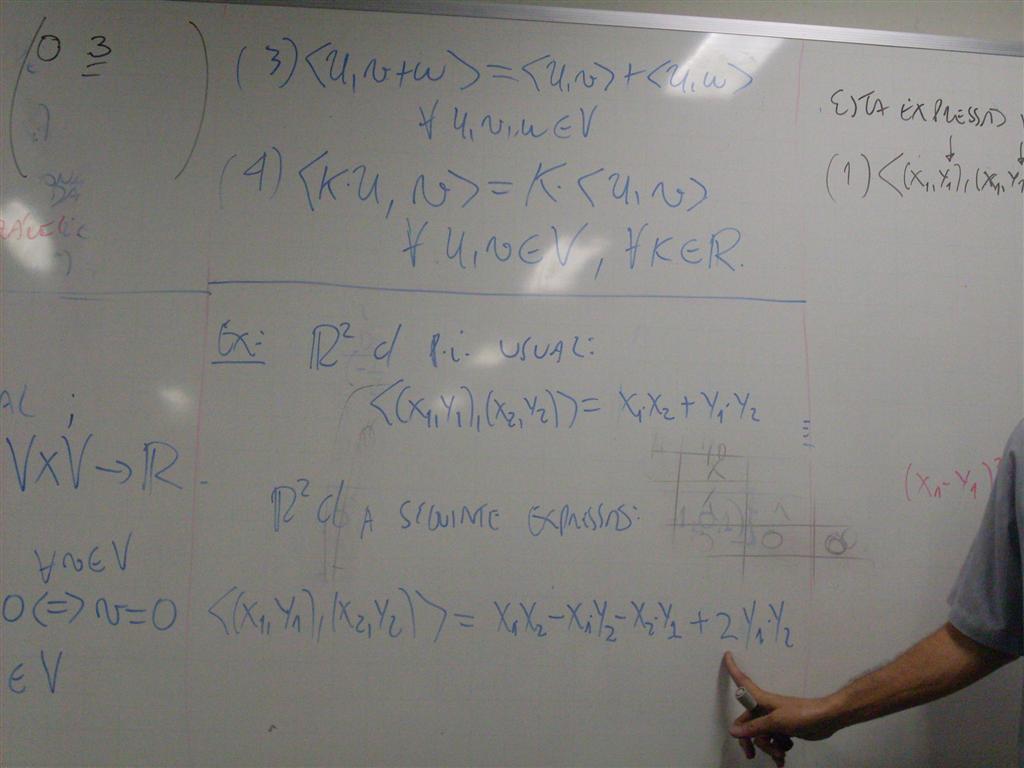 0 3
(3) <u,v+w> = <u,v> + <u,w>
∀ u,v,w ∈ V
(4) <K·u, v> = K·<u,v>
∀ u,v ∈ V, ∀ K ∈ ℝ.
AL ;
V×V → ℝ
∀ v ∈ V
0 (=> v=0
∈ V
Ex: ℝ² c/ p.i. USUAL:
<(x₁,y₁),(x₂,y₂)> = x₁x₂ + y₁·y₂
ℝ² c/ A SEGUINTE EXPRESSÃO:
<(x₁,y₁),(x₂,y₂)> = x₁x₂ - x₁y₂ - x₂·y₁ + 2y₁·y₂
ESTA EXPRESSÃO
(1) <(x₁,y₁),(x₁,y₁
(x₁-y₁)²